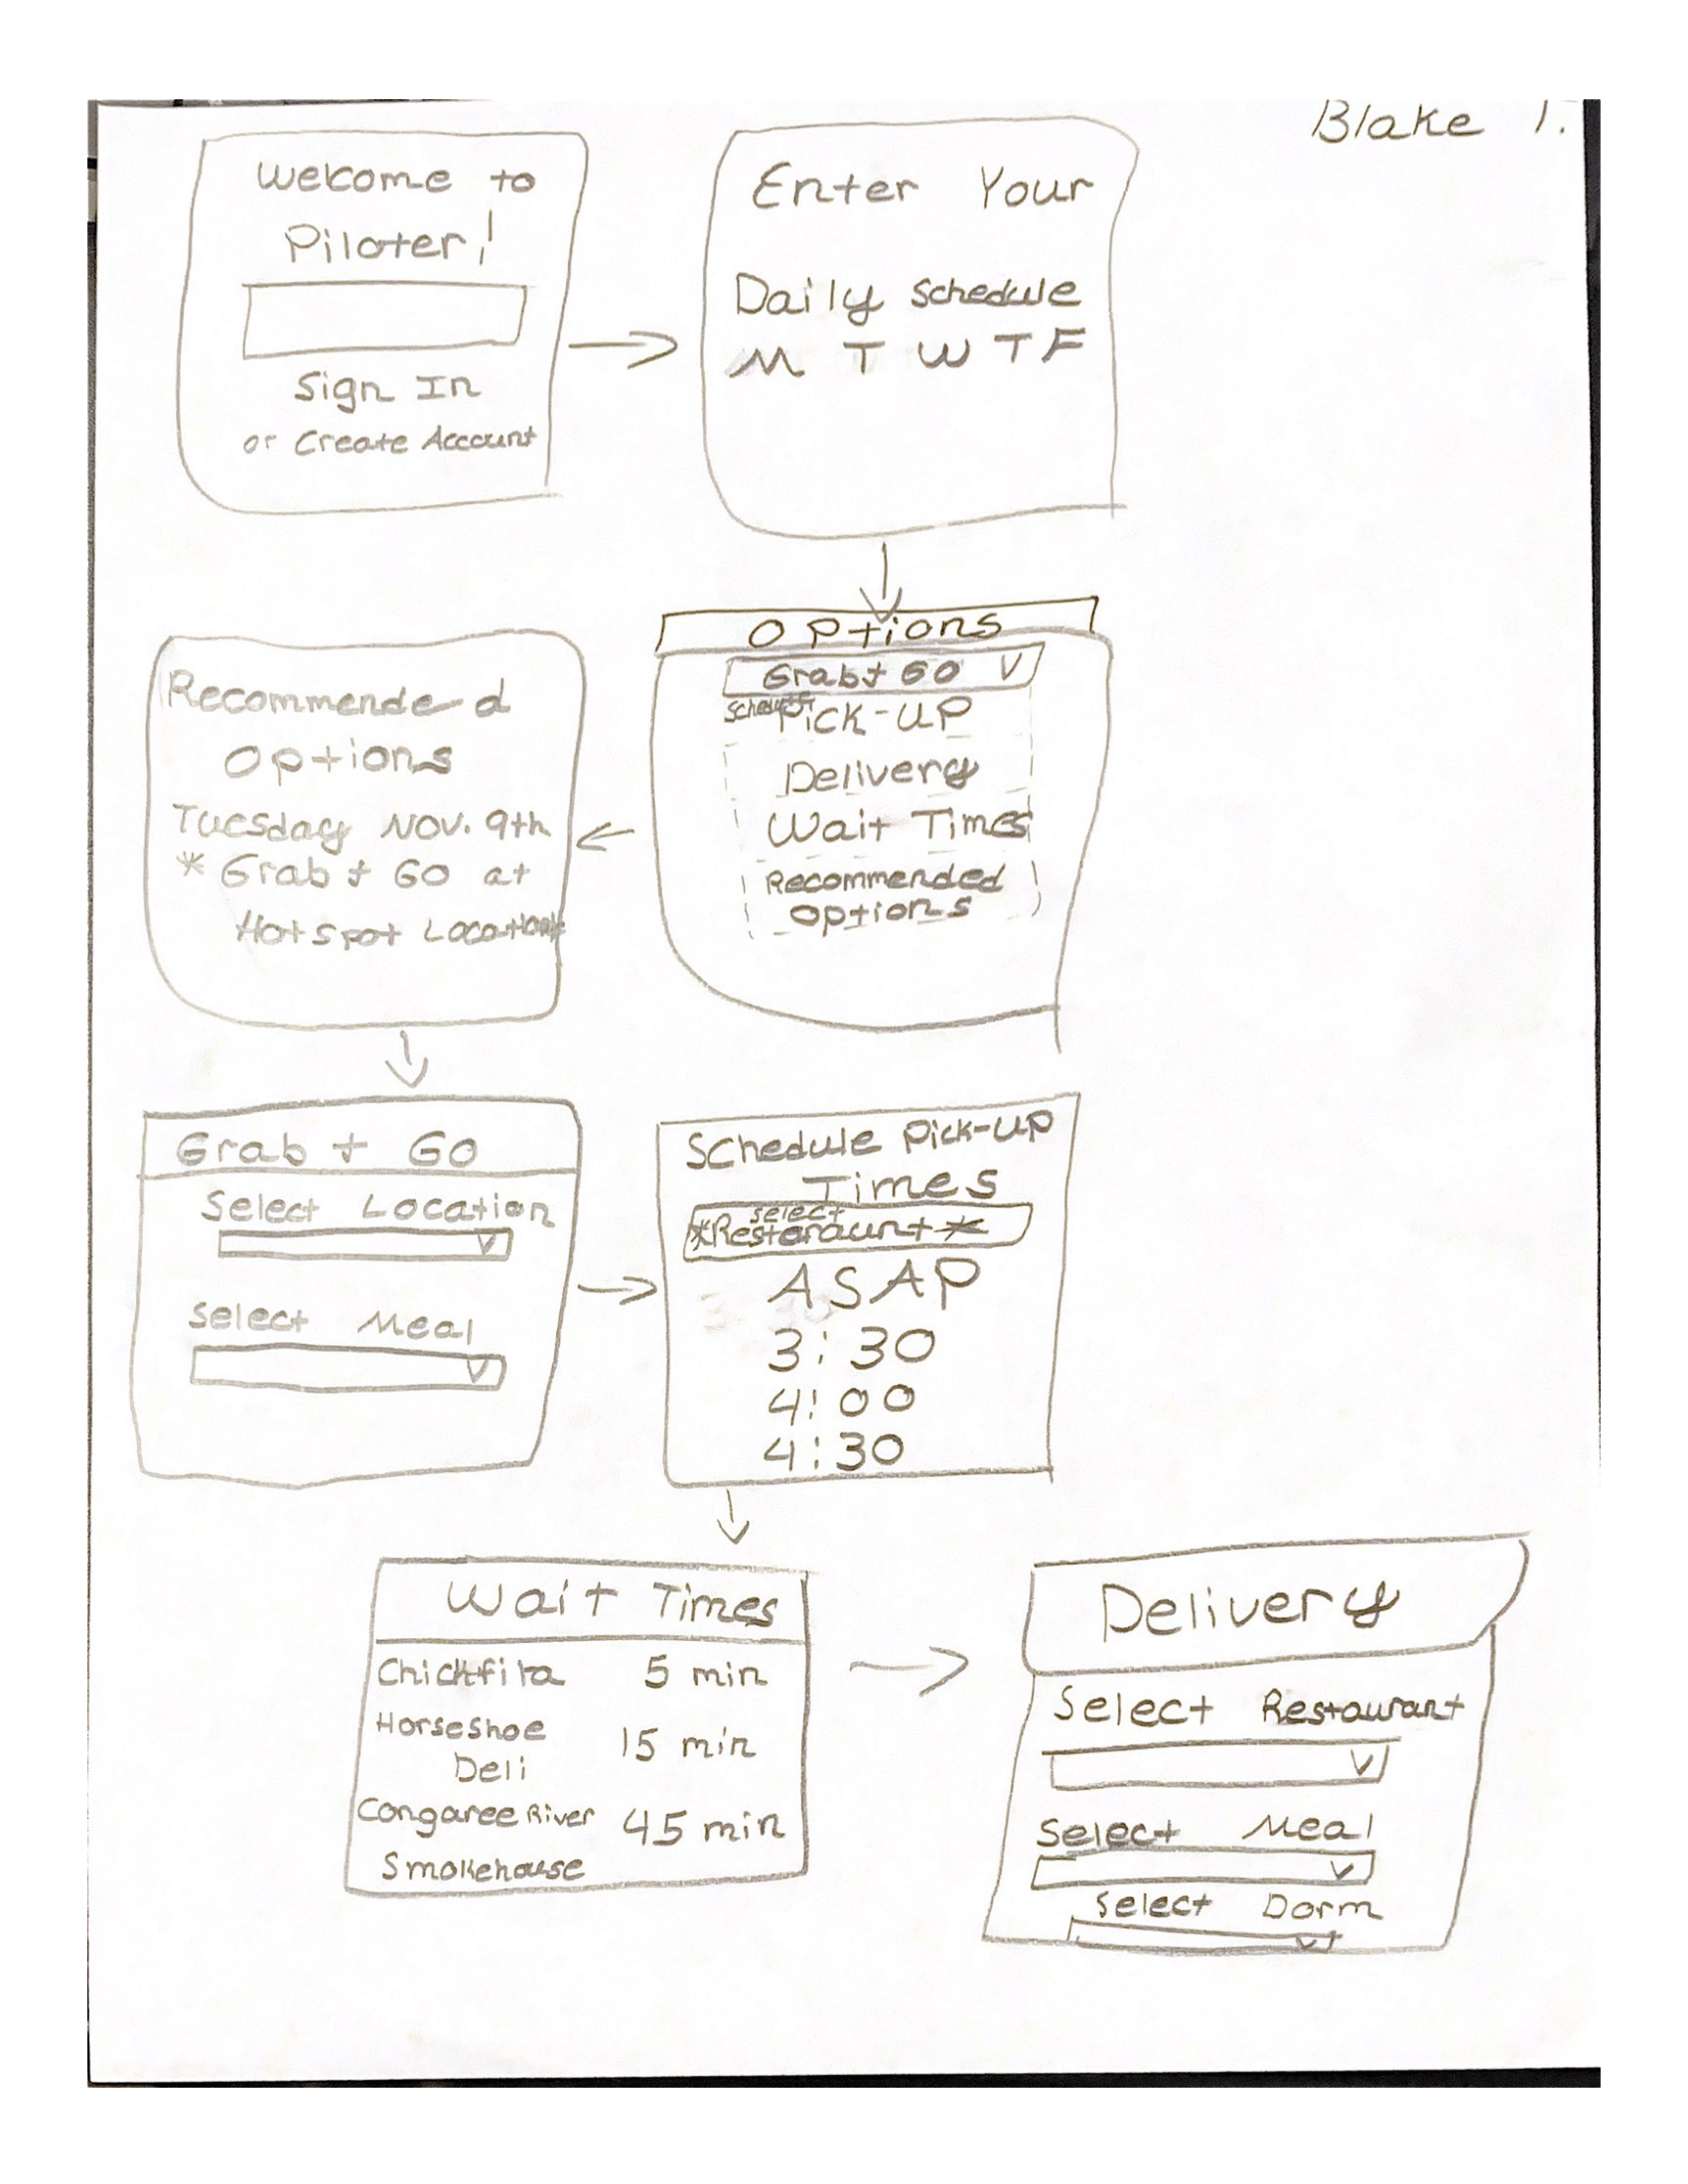 Blake I.
Welcome to
Piloter!
Sign In
or Create Account
Enter Your
Daily Schedule
M T W T F
Options
Grab + GO V
Schedule
Pick-UP
Delivery
Wait Times
Recommended
Options
Recommended
Options
Tuesday Nov. 9th
* Grab + GO at
Hotspot Locations
Grab + GO
Select Location
Select Meal
Schedule Pick-UP
Times
select
*Restaraunt*
ASAP
3:30
4:00
4:30
Wait Times
Chickfila 5 min
Horseshoe
Deli 15 min
Congaree River 45 min
Smokehouse
Delivery
Select Restaurant
Select Meal
Select Dorm